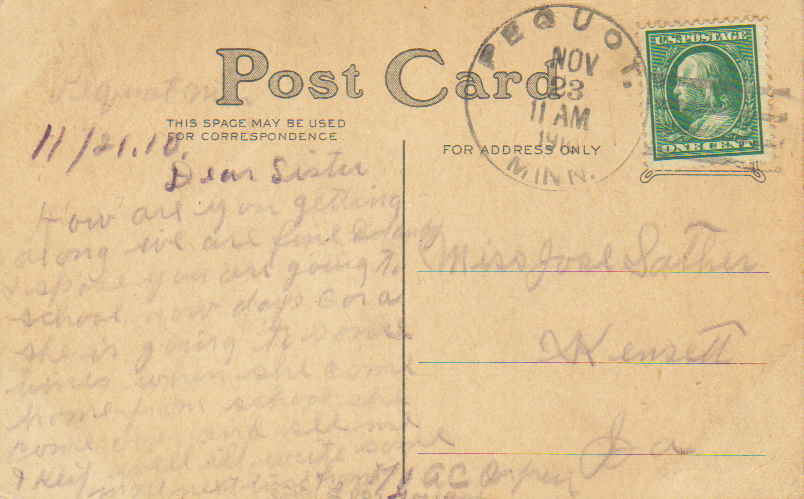 Post Card
THIS SPACE MAY BE USED
FOR CORRESPONDENCE.
FOR ADDRESS ONLY
PEQUOT,
NOV
23
11 AM
MINN.
U.S. POSTAGE
ONE CENT
11/21.10
Dear Sister
How are you getting
along we are fine
you are going to
school now days Cora
she is going to some
times when she come
home from school she
come over and see me
well ill write some
more next time from
Miss Jose Sather
Kensett
Ia